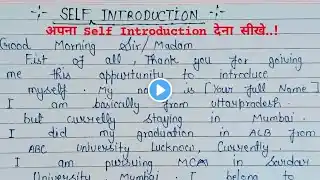 SELF INTRODUCTION
अपना Self Introduction देना सीखे..!
Good Morning Sir/Madam
Fist of all, Thank you for goiving
me this appurtunity to introduce
myself. My name is [Your full Name]
I am basically from uttarpradesh.
but currelly staying in Mumbai.
I did my graduation in ALB from
ABC university Lucknow, Currently.
I am pursuing MCA in Sardar
University, Mumbai. I belong to